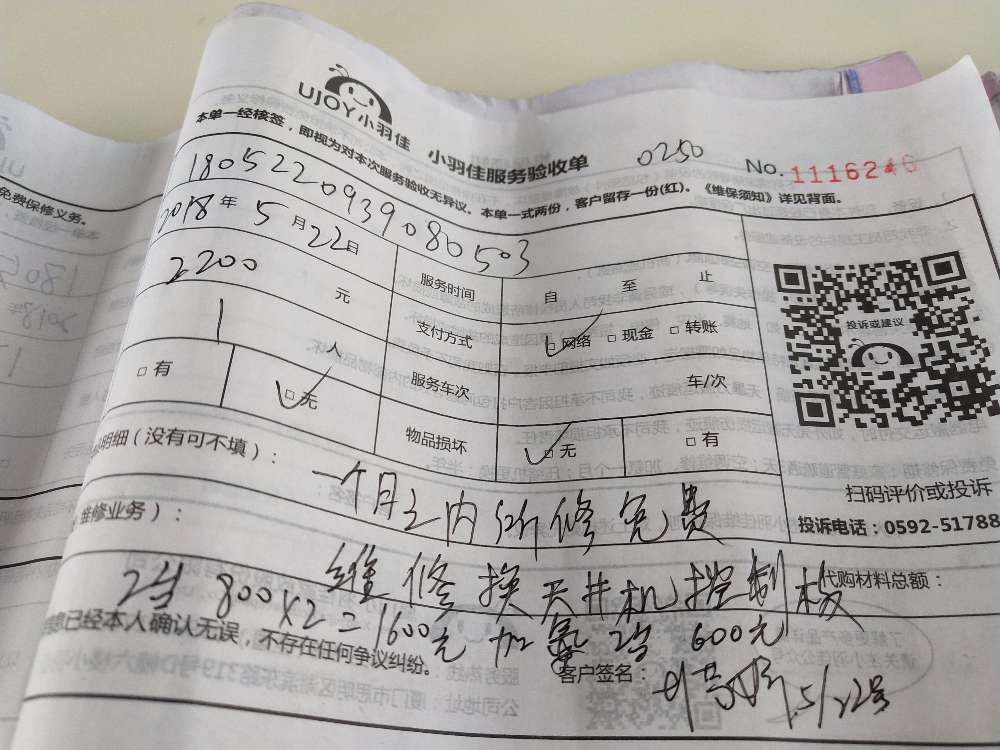 UJOY小羽佳
小羽佳服务验收单
0250
No. 1116246
本单一经核签，即视为对本次服务验收无异议。本单一式两份，客户留存一份(红)。《维保须知》详见背面。
180522093908 0503
2018年 5月22日 服务时间 自 至 止
2200 元 支付方式 □网络 □现金 □转账
1 人 服务车次 车/次
□有 □无 物品损坏 □无 □有
投诉或建议
扫码评价或投诉
投诉电话：0592-51788
明细（没有可不填）：
一个月之内 修免费
维修业务）：
维修换天井机控制板
代购材料总额：
2台 800×2=1600元 加氟2台 600元
息已经本人确认无误，不存在任何争议纠纷。
客户签名：
5/22号
免费保修义务。